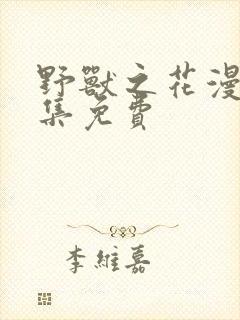 野獸之花漫
集免費
李維嘉